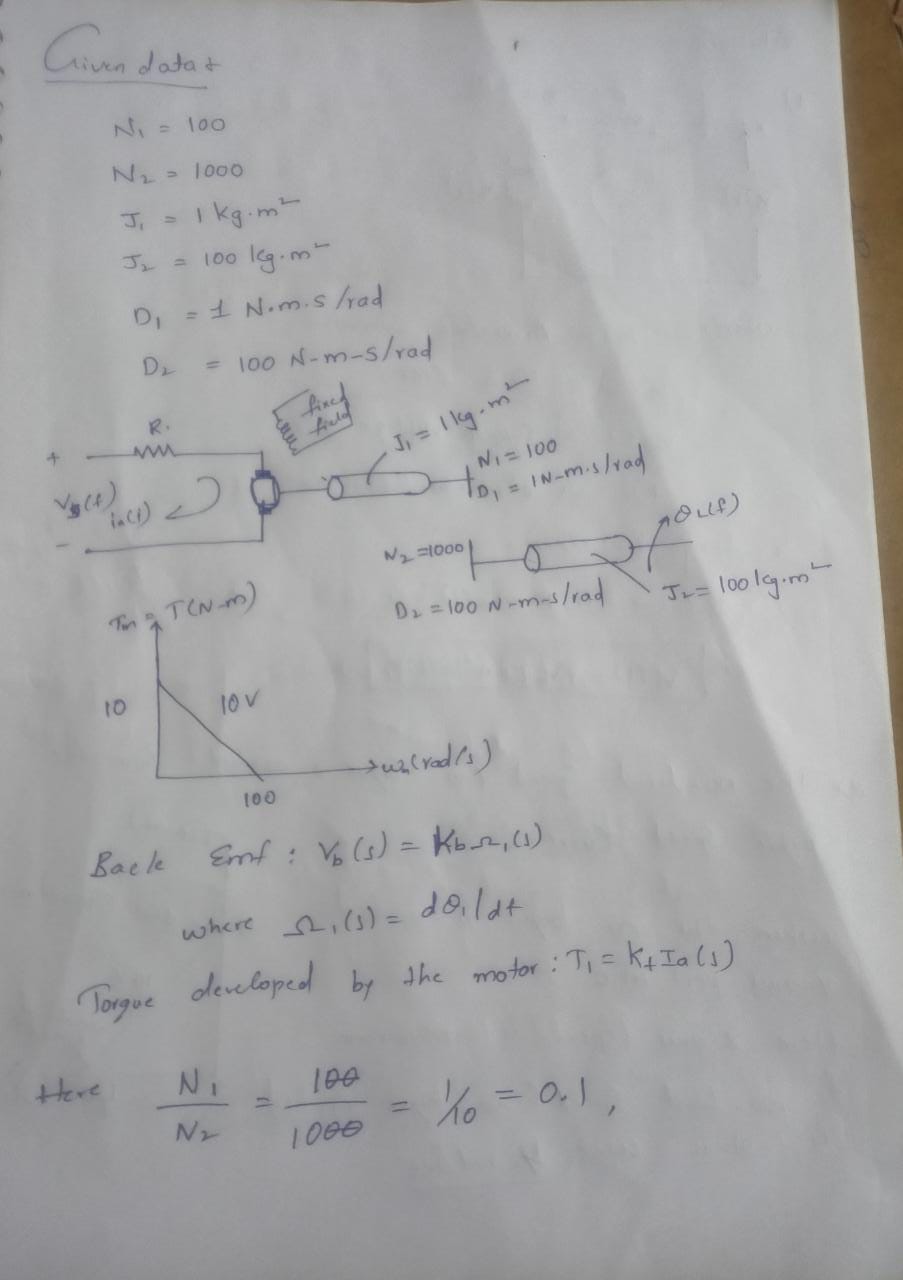 Given data :
N₁ = 100
N₂ = 1000
J₁ = 1 kg.m²
J₂ = 100 kg.m²
D₁ = 1 N.m.s/rad
D₂ = 100 N-m-s/rad
fixed
field
R.
+
J₁ = 1kg.m²
N₁ = 100
D₁ = 1N-m.s/rad
iₐ(t)
-
θL(t)
N₂ =1000
D₂ = 100 N-m-s/rad
J₂ = 100 kg.m²
T(N-m)
10
10V
(rad/s)
100
Back Emf : Vb(s) = KbΩ₁(s)
where Ω₁(s) = dθ₁/dt
Torque developed by the motor : T₁ = KtIa(s)
Here N₁/N₂ = 100/1000 = 1/10 = 0.1,